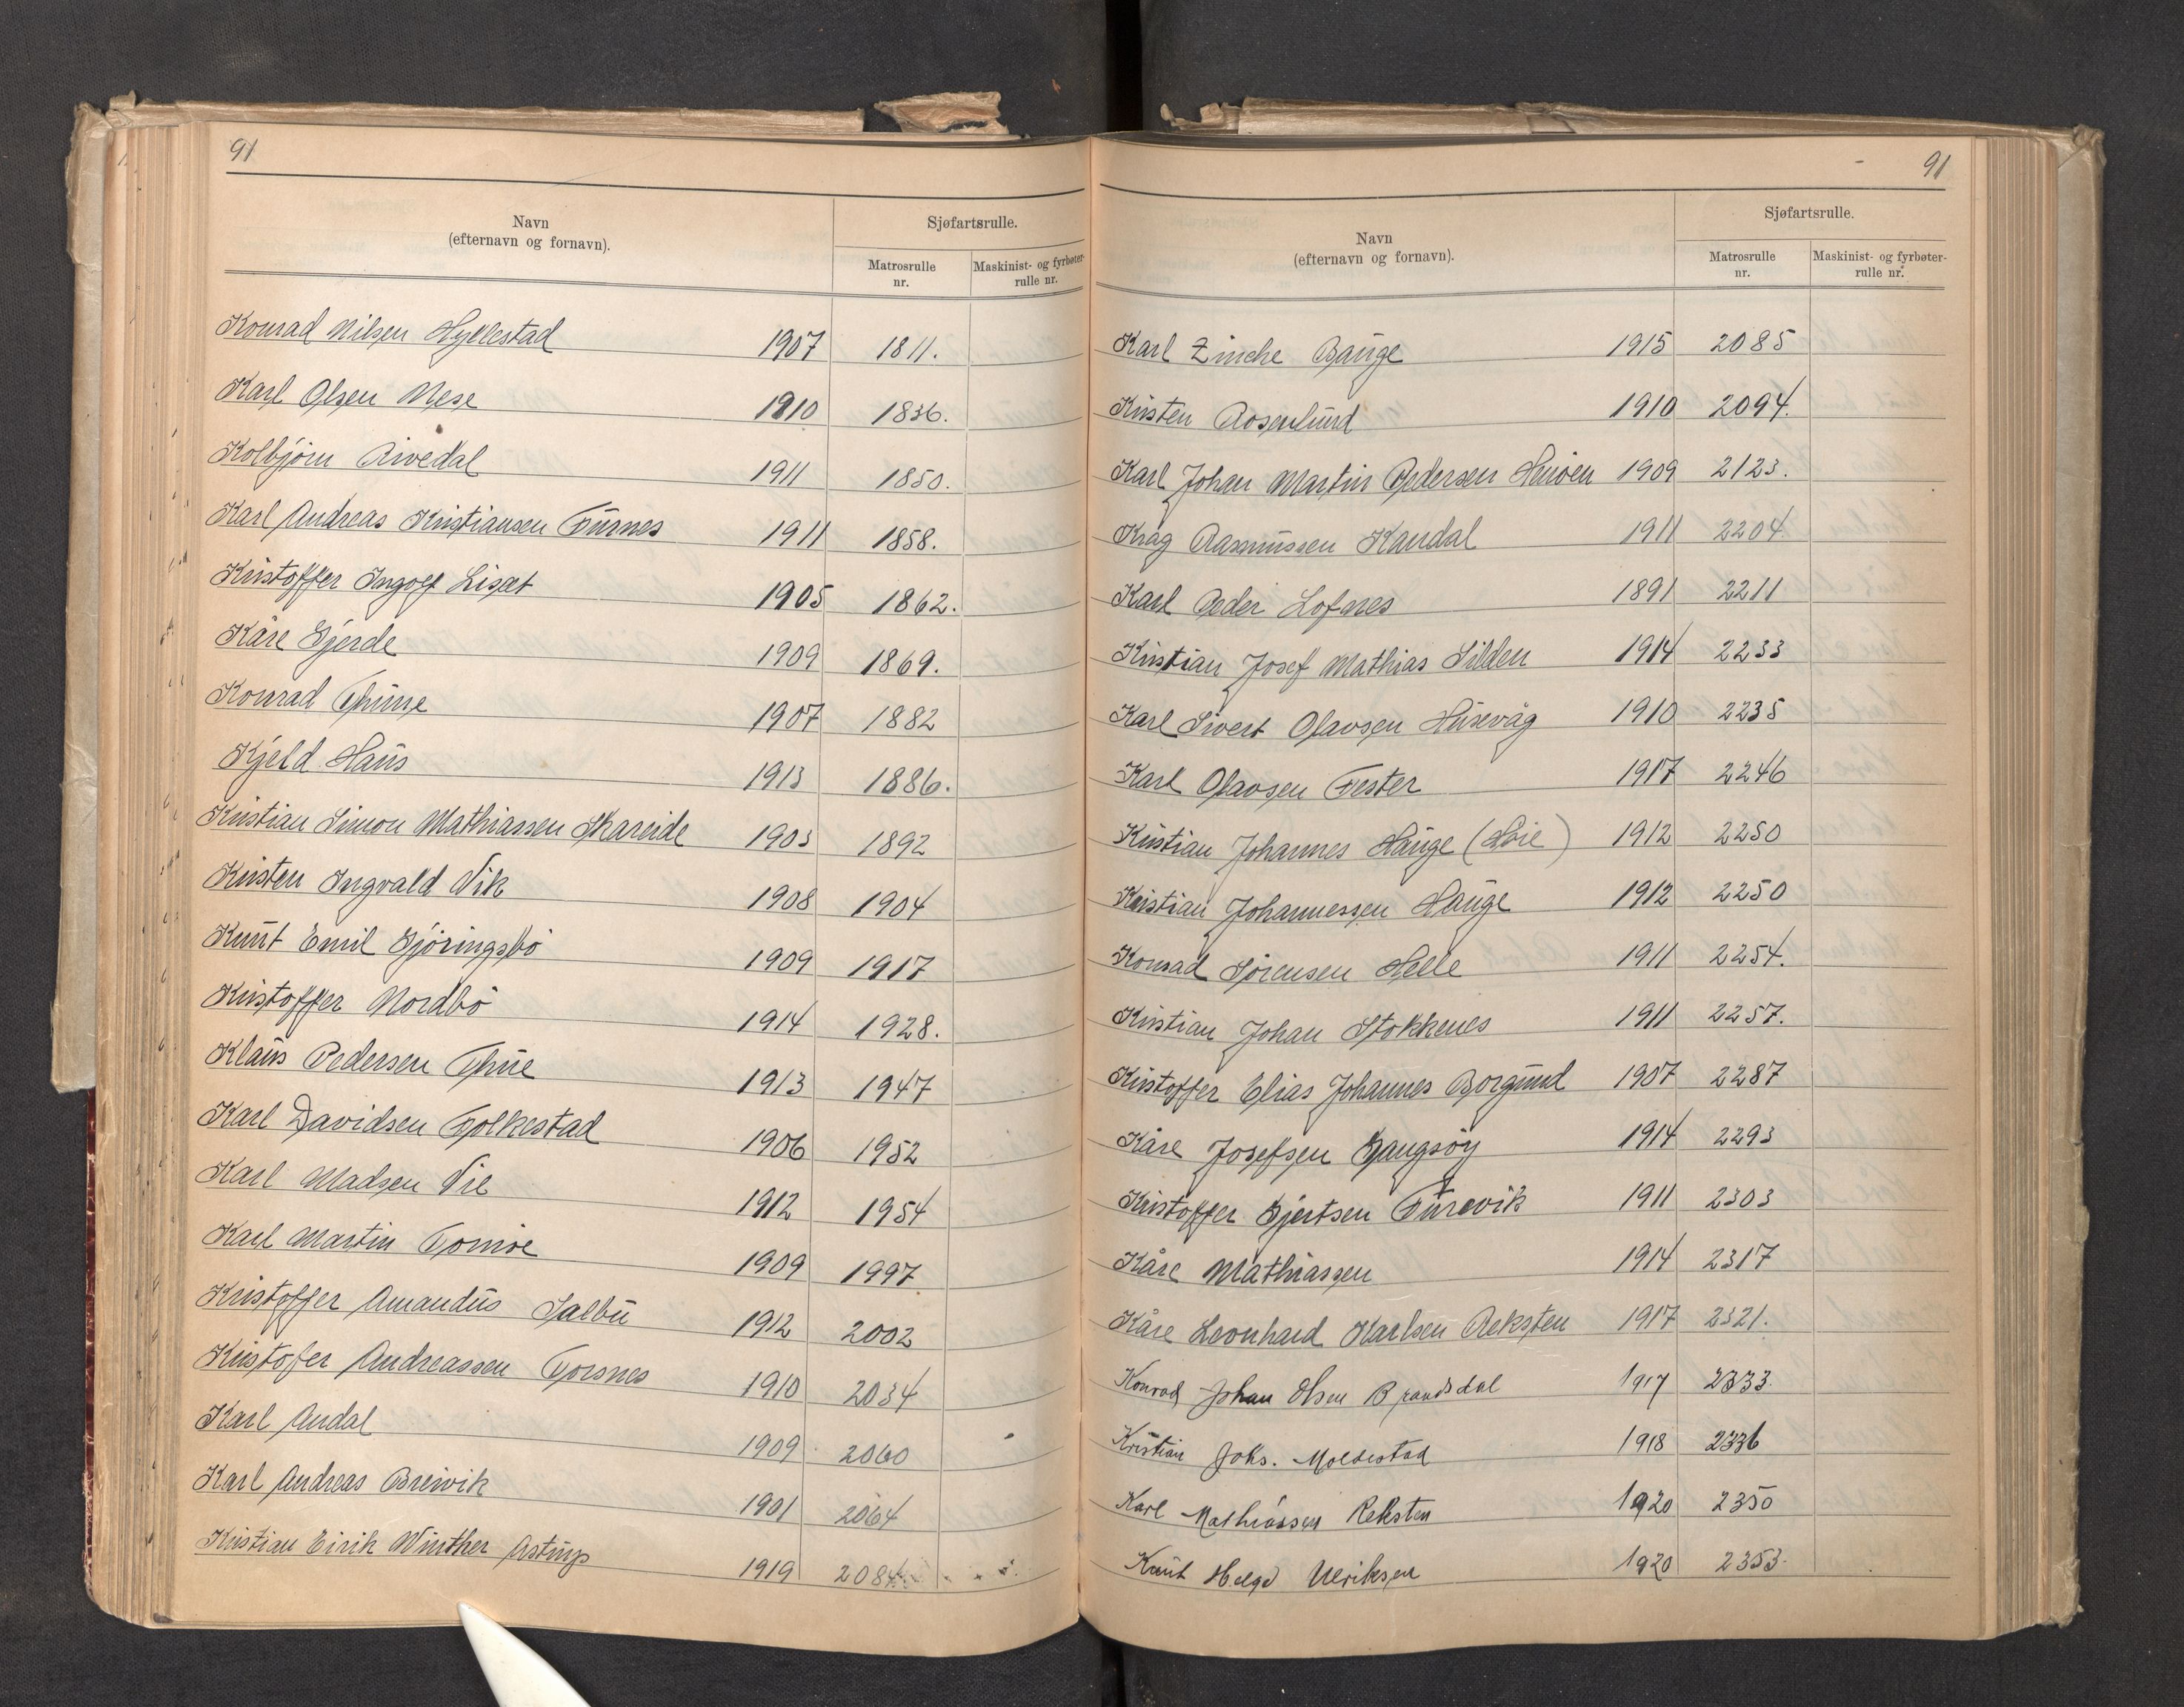 91
Navn
(efternavn og fornavn).
Sjøfartsrulle.
Matrosrulle nr.
Maskinist- og fyrbøter-rulle nr.
Konrad Nilsen Hyllestad 1907 1811.
Karl Olsen Nese 1910 1836.
Kolbjørn Rivedal 1911 1850.
Karl Andreas Kristiansen Furnes 1911 1858.
Kristoffer Ingolf Liset 1905 1862.
Kåre Gjerde 1909 1869.
Konrad Thune 1907 1882
Kjeld Haus 1913 1886.
Kristian Simon Mathiassen Skareide 1903 1892
Kristen Ingvald Vik 1908 1904
Knut Emil Gjöringsbö 1909 1917
Kristoffer Nordbö 1914 1928.
Klaus Pedersen Thue 1913 1947
Karl Davidsen Folkestad 1906 1952
Karl Madsen Vie 1912 1954
Karl Martin 1909 1997
Kristoffer Amandus Salbu 1912 2002
Kristofer Andreassen Forsnes 1910 2034
Karl Aadal 1909 2060
Karl Andreas Breivik 1901 2064
Kristian Eirik Winther Astrup 1919 2084
91
Navn
(efternavn og fornavn).
Sjøfartsrulle.
Matrosrulle nr.
Maskinist- og fyrbøter-rulle nr.
Karl Zinche Bauge 1915 2085
Kristen Rosenlund 1910 2094.
Karl Johan Martin Pedersen Henöen 1909 2123.
Krag Rasmussen Kandal 1911 2204
Karl Peder Lofnes 1891 2211
Kristian Josef Mathias Silden 1914 2233
Karl Sivert Olavsen Husevåg 1910 2235
Karl Olavsen Fester 1917 2246
Kristian Johannes Hauge (Höie) 1912 2250
Kristian Johannessen Hauge 1912 2250
Konrad Sørensen Helle 1911 2254.
Kristian Johan Stokkenes 1911 2257.
Kristoffer Elias Johannes Borgund 1907 2287
Kåre Josefsen Gangsøy 1914 2293
Kristoffer Gjertsen Furevik 1911 2303
Kåre Mathiassen 1914 2317
Kåre Leonhard Karlsen Reksten 1917 2321.
Konrad Johan Olsen Brandsdal 1917 2333.
Kristian Johs. Moldestad 1918 2336
Karl Mathiassen Reksten 1920 2350
Knut Helge Ulriksen 1920 2353.